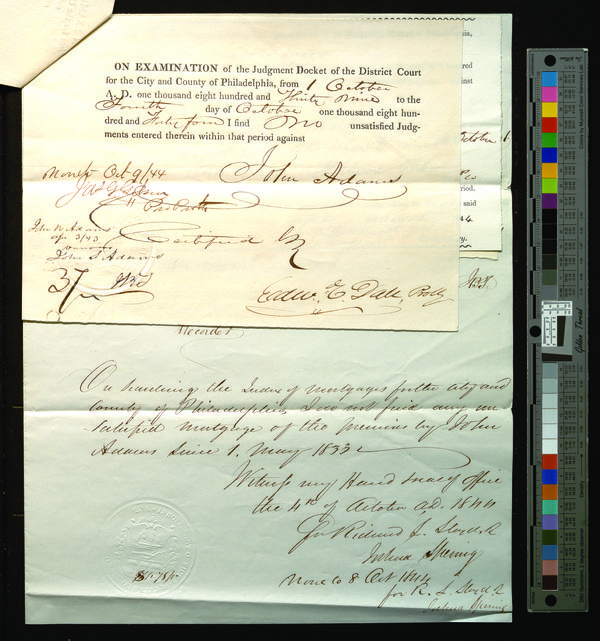 ON EXAMINATION of the Judgment Docket of the District Court
for the City and County of Philadelphia, from 1 October
A. D. one thousand eight hundred and Thirty Nine to the
Fourth day of October one thousand eight hun-
dred and Forty four I find No unsatisfied Judg-
ments entered therein within that period against
John Adams
None to Oct 9/44
Certified by
John S. Adams
Edw. E. Dale, Prothy
Recorder
On searching the Index of mortgages for the city and
County of Philadelphia, I do not find any un
satisfied mortgage of the premises by John
Adams since 1. May 1833
Witness my Hand & seal of office
the 4th of October AD. 1844
for Richard L. Lloyd R
Joshua Spering
None to 8 Oct 1844
for R. L. Lloyd R
Joshua Spering
October
period.
said